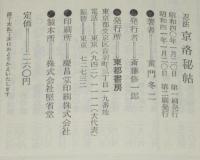 忍法 京洛秘帖
昭和四〇年一二月一日 第一刷発行
昭和四一年一月二〇日 第二刷発行
●著者―黄門冬二
●発行者―斎藤修一郎
●発行所―東都書房
東京都文京区音羽町三丁目一九番地
電話―東京(九四二)一一一一(大代表)
振替―東京 七二七三二
●印刷所―慶昌堂印刷株式会社
●製本所―株式会社堅省堂
定価―二六〇円
落丁本・乱丁本はおとりかえいたします。